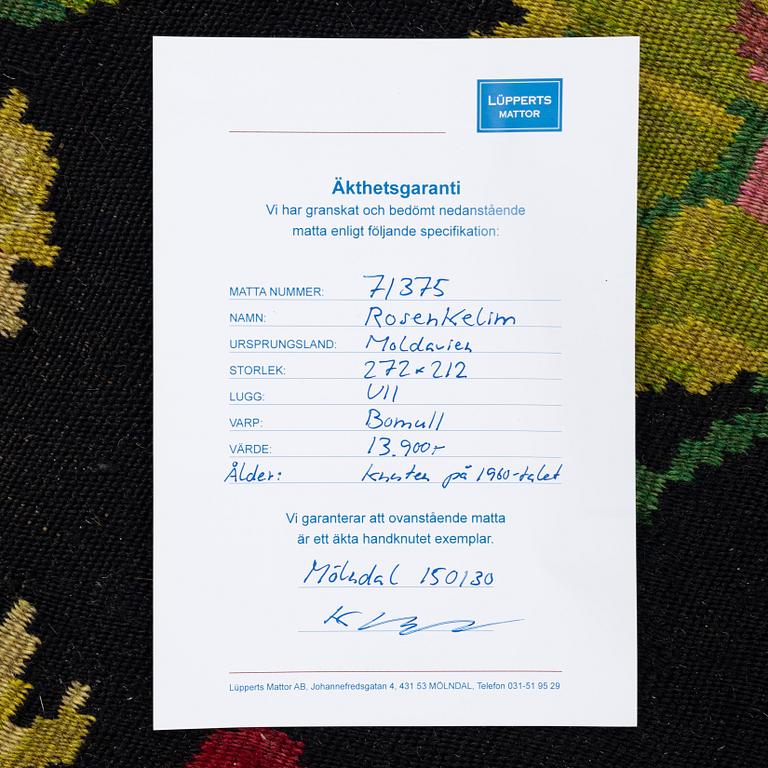 LÜPPERTS
MATTOR
Äkthetsgaranti
Vi har granskat och bedömt nedanstående
matta enligt följande specifikation:
MATTA NUMMER: 71375
NAMN: RosenKelim
URSPRUNGSLAND: Moldavien
STORLEK: 272 x 212
LUGG: Ull
VARP: Bomull
VÄRDE: 13.900:-
Ålder: Knuten på 1960-talet
Vi garanterar att ovanstående matta
är ett äkta handknutet exemplar.
Mölndal 150130
Lüpperts Mattor AB, Johannefredsgatan 4, 431 53 MÖLNDAL, Telefon 031-51 95 29